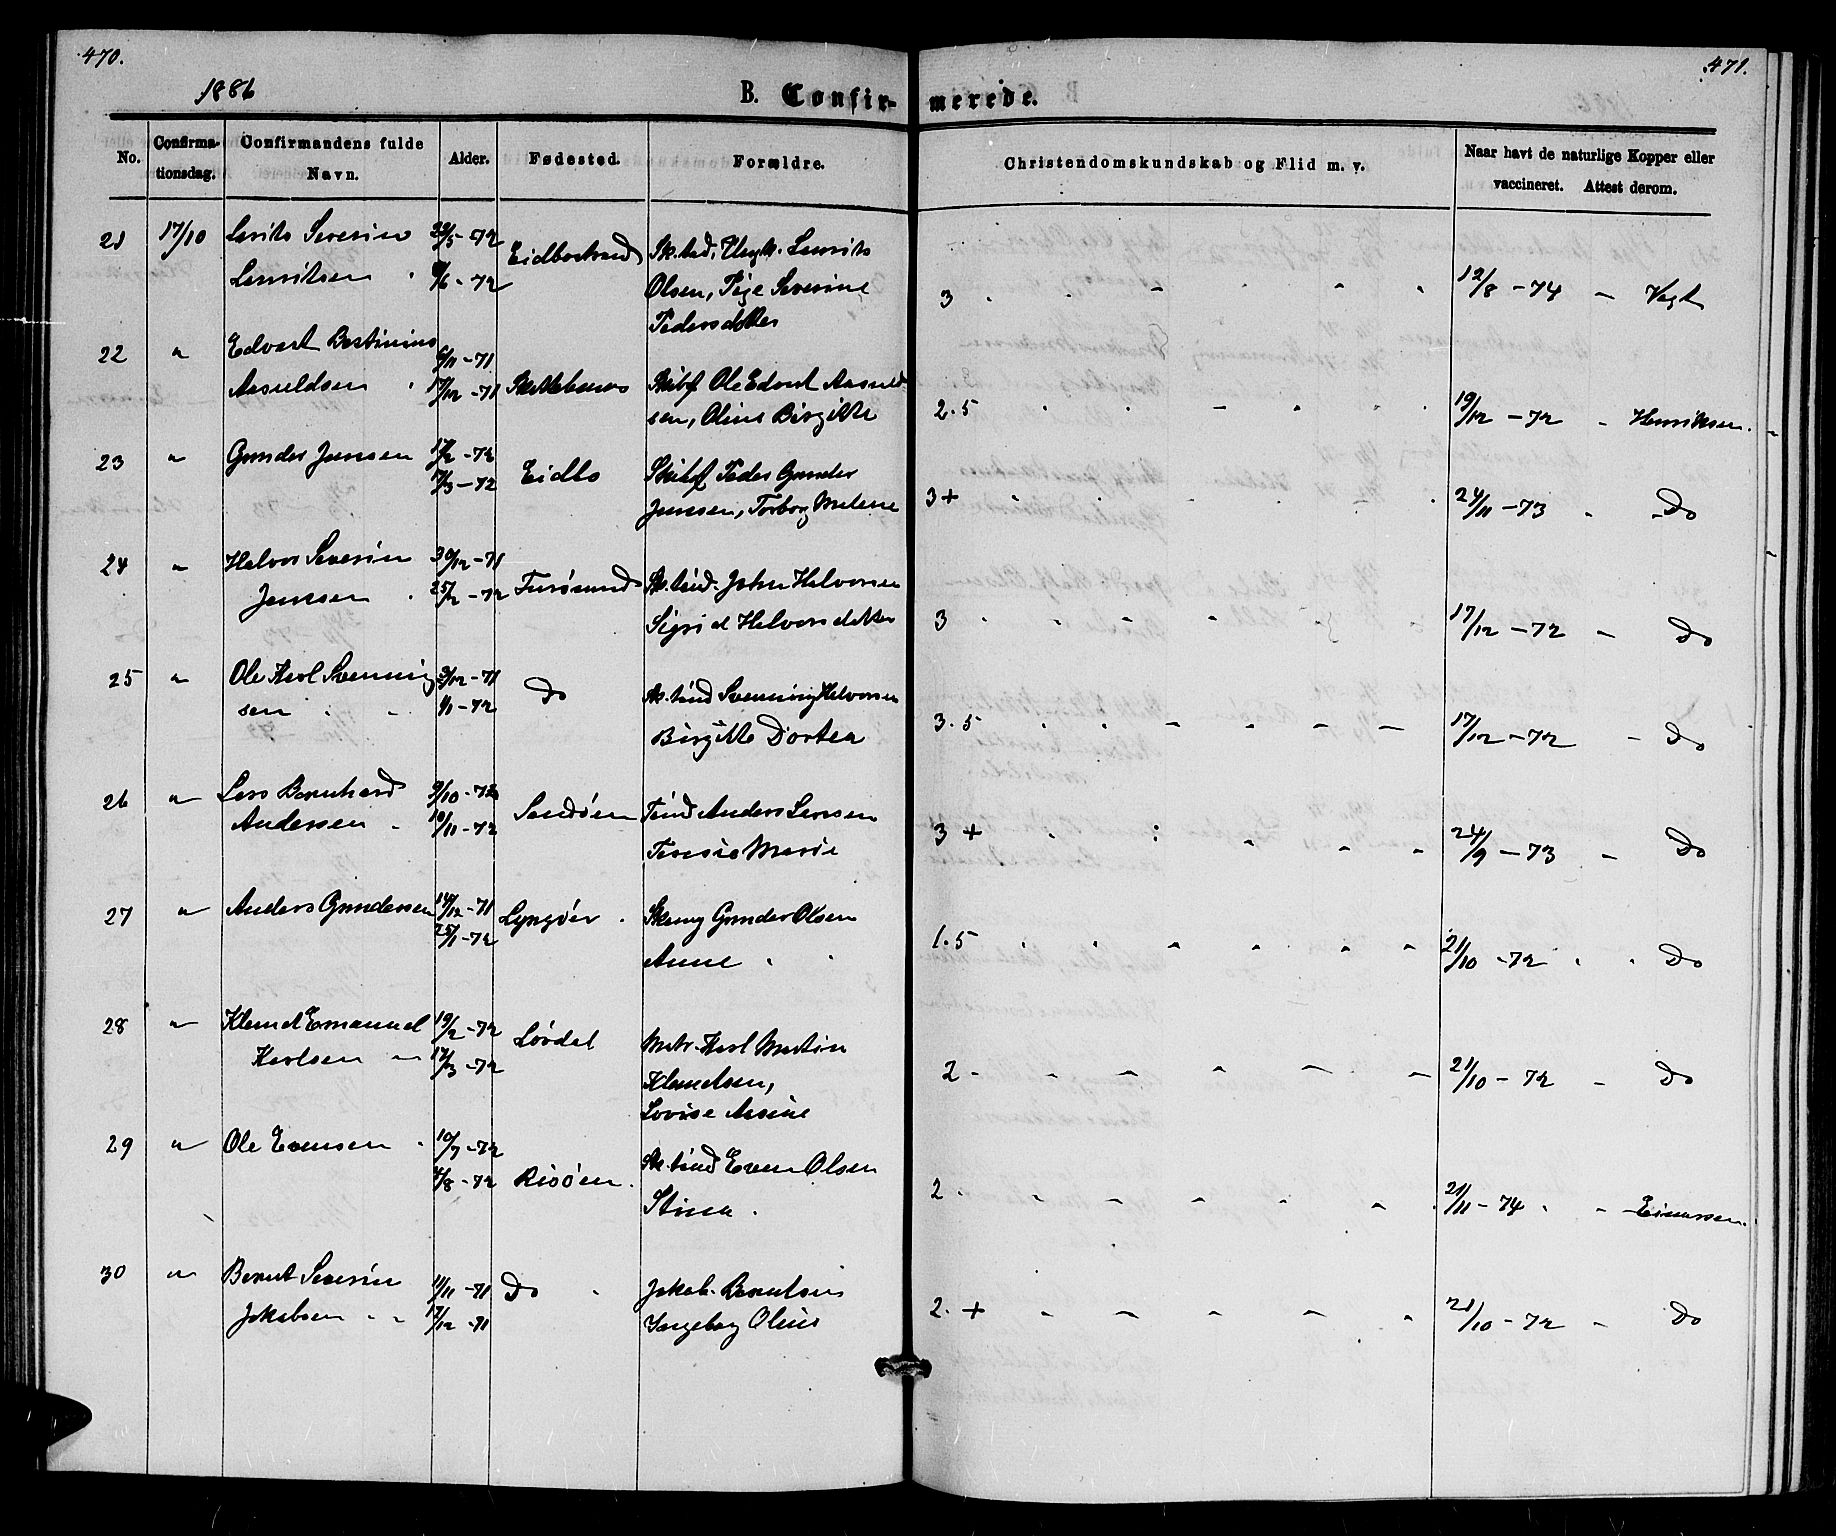 470.
471.
1886
B. Confir- merede.
No.
Confirma-
tionsdag.
Confirmandens fulde
Navn.
Alder.
Fødested.
Forældre.
Christendomskundskab og Flid m. v.
Naar havt de naturlige Kopper eller
vaccineret. Attest derom.
21 17/10 Severin 22/5 -72 Eidbostrand Laurits
Lauritsen 9/6 - 72 Olsen, Severine
Pedersdatter
3 12/8 - 74 - Vogt
22 " Edvart Bertinius 6/11 -71
Aasuldsen 17/12 -71 Skibf Ole Edvart Aasuld
sen, Oline Birgitte
2.5 19/12 - 72 - Henriksen.
23 " Gunder Jensen 17/2 -72 Eidbo Skibf Peder Gunder
17/3 - 72 Jenssen, Torborg Malene
3+ 24/11 - 73 - Do
24 " Halvor Severin 30/12 -71
Jenssen 25/2 - 72 Furøsund John Halvorsen
Sigrid Halvorsdatter
3 17/12 - 72 - Do
25 " Ole Karl Svenning 2/12 -71 Do Svenning Halvorsen
sen 1/1 - 72 Birgitte Dortea
3.5 17/12 - 72 - Do
26 " Lars Bernhard 9/10 -72 Sandøen Anders Larssen
Anderssen 10/11 -72 Marie
3 + 24/9 - 73 - Do
27 " Anders Gundersen 14/12 -71 Lyngøer Gunder Olsen
25/1 -72 Anne
1.5 21/10 -72 Do
28 " Emanuel 19/2 -72 Løvdal Karl Martin
Karlsen 17/3 -72 Lovise
2 - 21/10 - 72 - Do
29 " Ole Evensen 10/7 -72 Even Olsen
4/8 -72 Risøen. Stina
2 21/11 - 74 - Einarssen.
30 " Berent Severin 11/11 -71 Do Jakob Berentsen
Jakobsen 17/12 -71 Ingeborg Oline
2. + 21/10 - 72 - Do